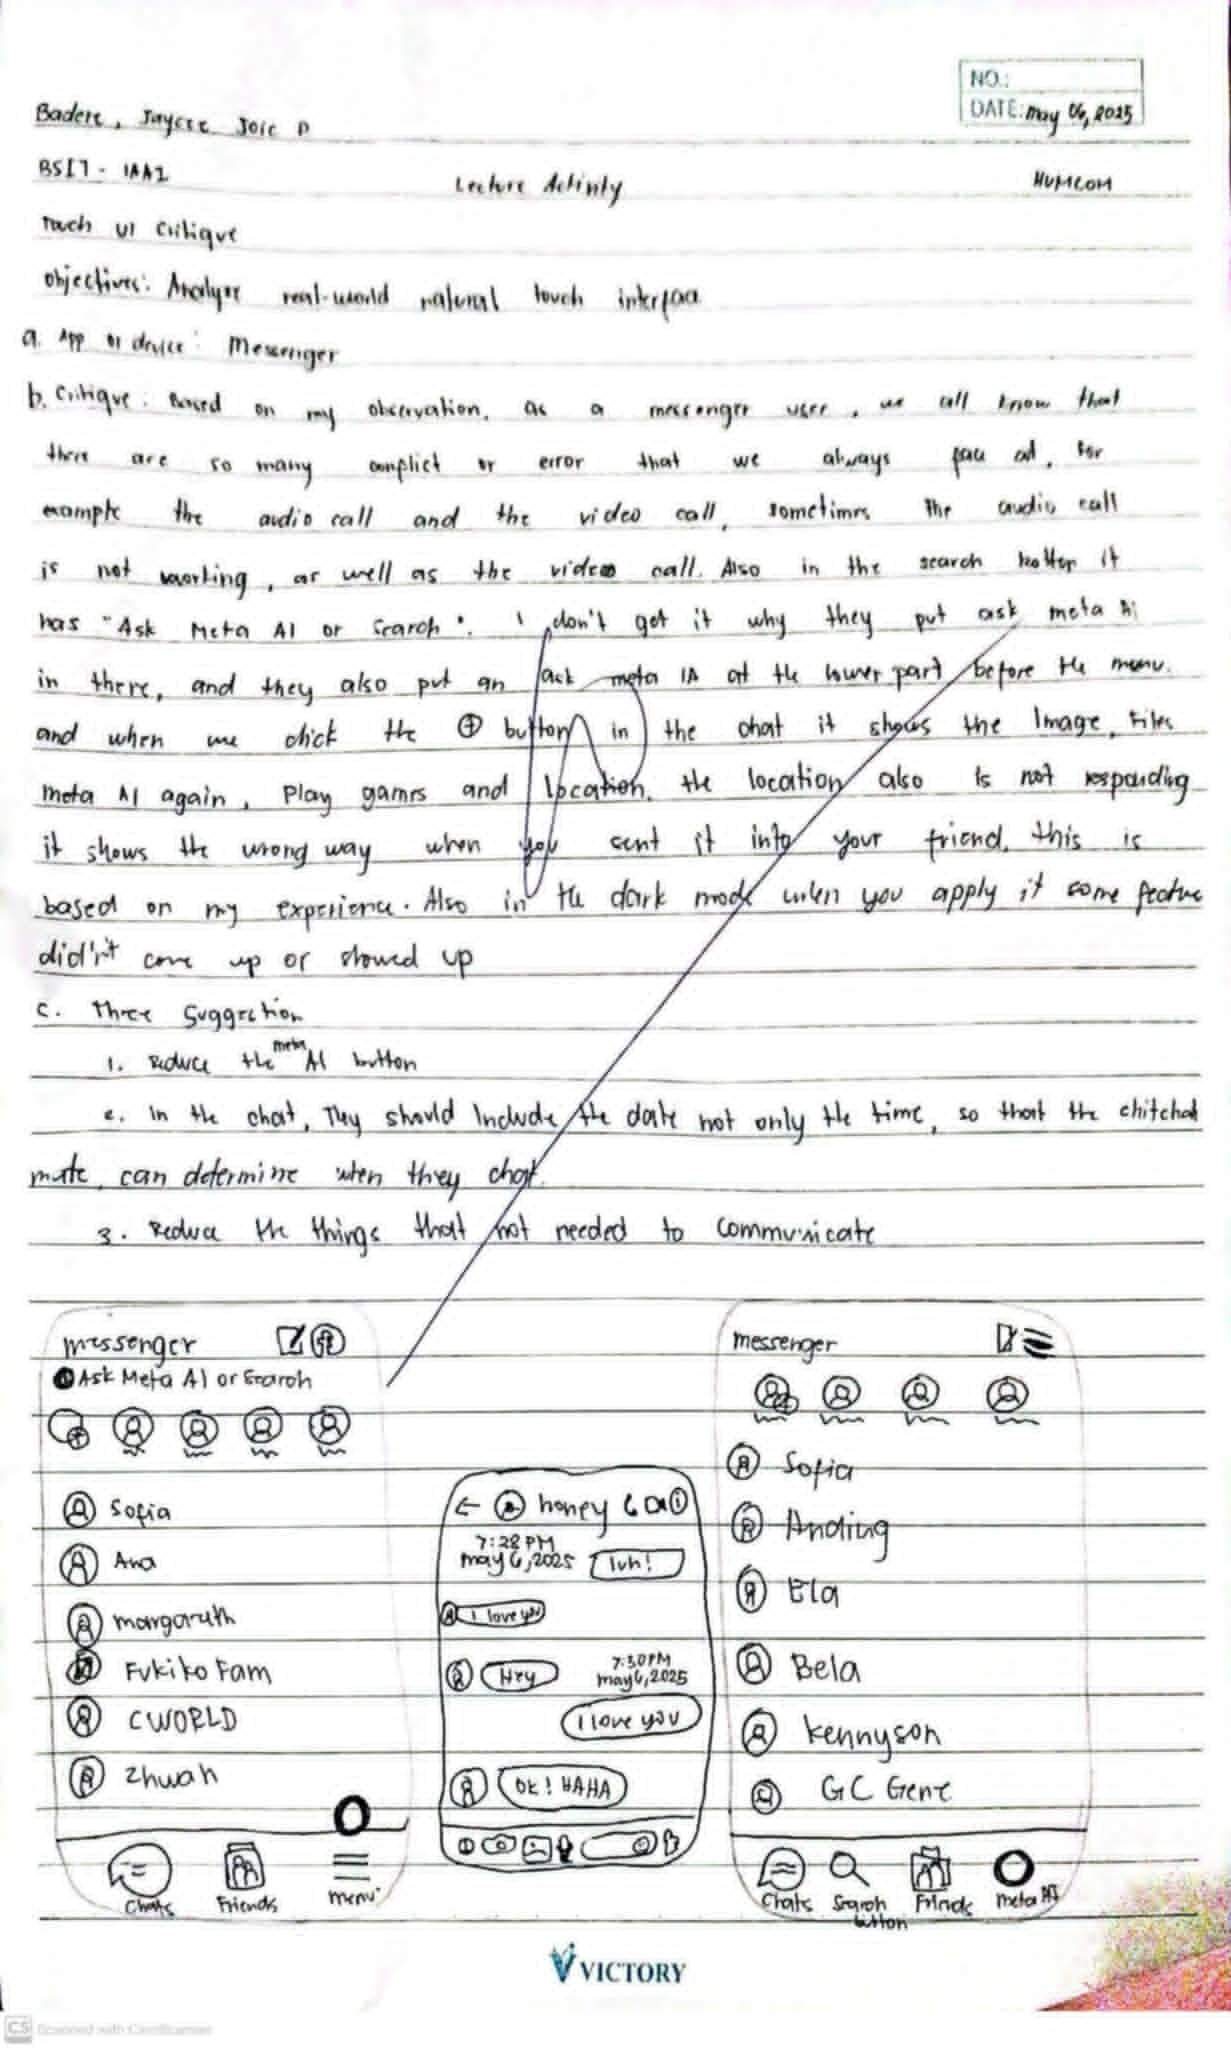 NO.:
DATE: may 06, 2025
Badere, Jaycee Joie D
BSIT - 1AA1
Lecture Activity
HUMCOM
Touch UI Critique
objectives: Analyze real-world natural touch interface
a. App or device: Messenger
b. Critique: Based on my observation, as a messenger user, we all know that
there are so many conflict or error that we always face at, for
example the audio call and the video call, sometimes the audio call
is not working, as well as the video call. Also in the search button it
has "Ask Meta AI or Search". I don't get it why they put ask meta Ai
in there, and they also put an ask meta IA at the lower part before the menu.
and when we click the ⊕ button in the chat it shows the Image, Files
meta AI again, Play games and location. the location also is not responding
it shows the wrong way when you sent it into your friend, this is
based on my experience. Also in the dark mode when you apply it some feature
did'nt come up or showed up
c. Three Suggestion
1. Reduce the meta AI button
2. In the chat, They should Include the date not only the time, so that the chitchat
mate, can determine when they chat.
3. Reduce the things that not needed to communicate
messenger
Ask Meta AI or Search
Sofia
Ana
margaruth
Fukiko Fam
CWORLD
Zhwah
Chats
Friends
menu
honey
7:28 PM
may 6, 2025
luh!
I love you
Hey
7:30 PM
may 6, 2025
I love you
OK! HAHA
messenger
Sofia
Anding
Ela
Bela
kennyson
GC Gene
Chats
Search button
Frinds
meta AI
VICTORY
CS Scanned with CamScanner